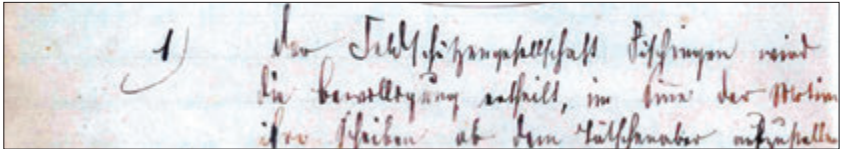 1) der Feldschützengesellschaft Fischingen wird
die bewilligung ertheilt, im Sinne der Motion
ihre Scheiben ob dem aufzustellen